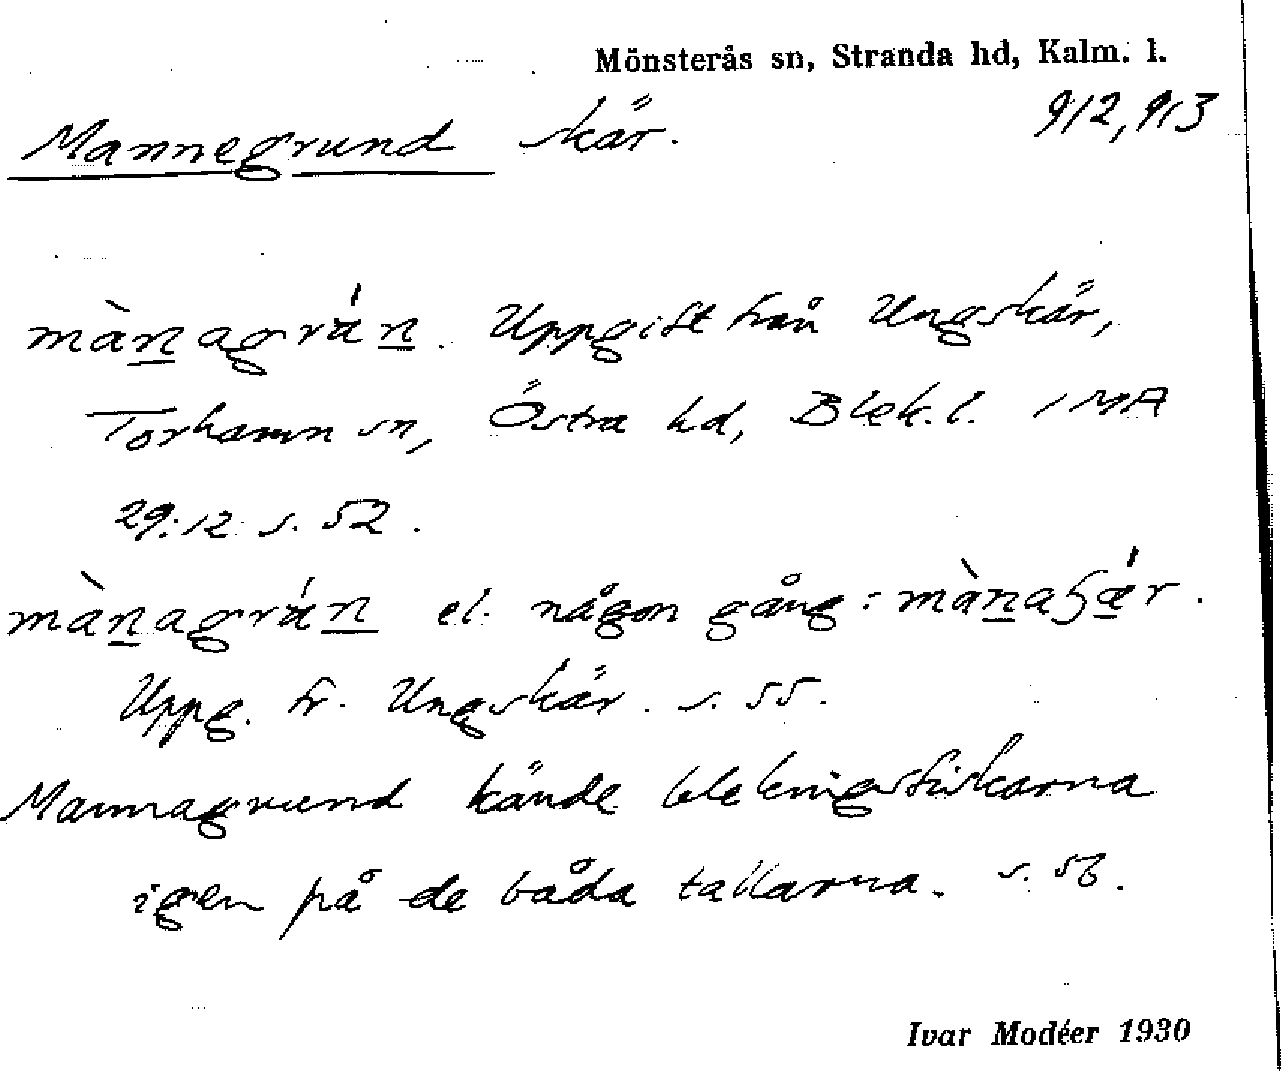 Mönsterås sn, Stranda hd, Kalm. l.
Mannegrund skär. 912, 913
mànagrán. Uppgift från Ungskär,
Torhamn sn, Östra hd, Blek. l. IMA
29:12 s. 52.
mànagrán el. någon gång:
Uppg. fr. Ungskär. s. 55.
Mannagrund kände blekingsfiskarna
igen på de båda tallarna. s. 56.
Ivar Modéer 1930